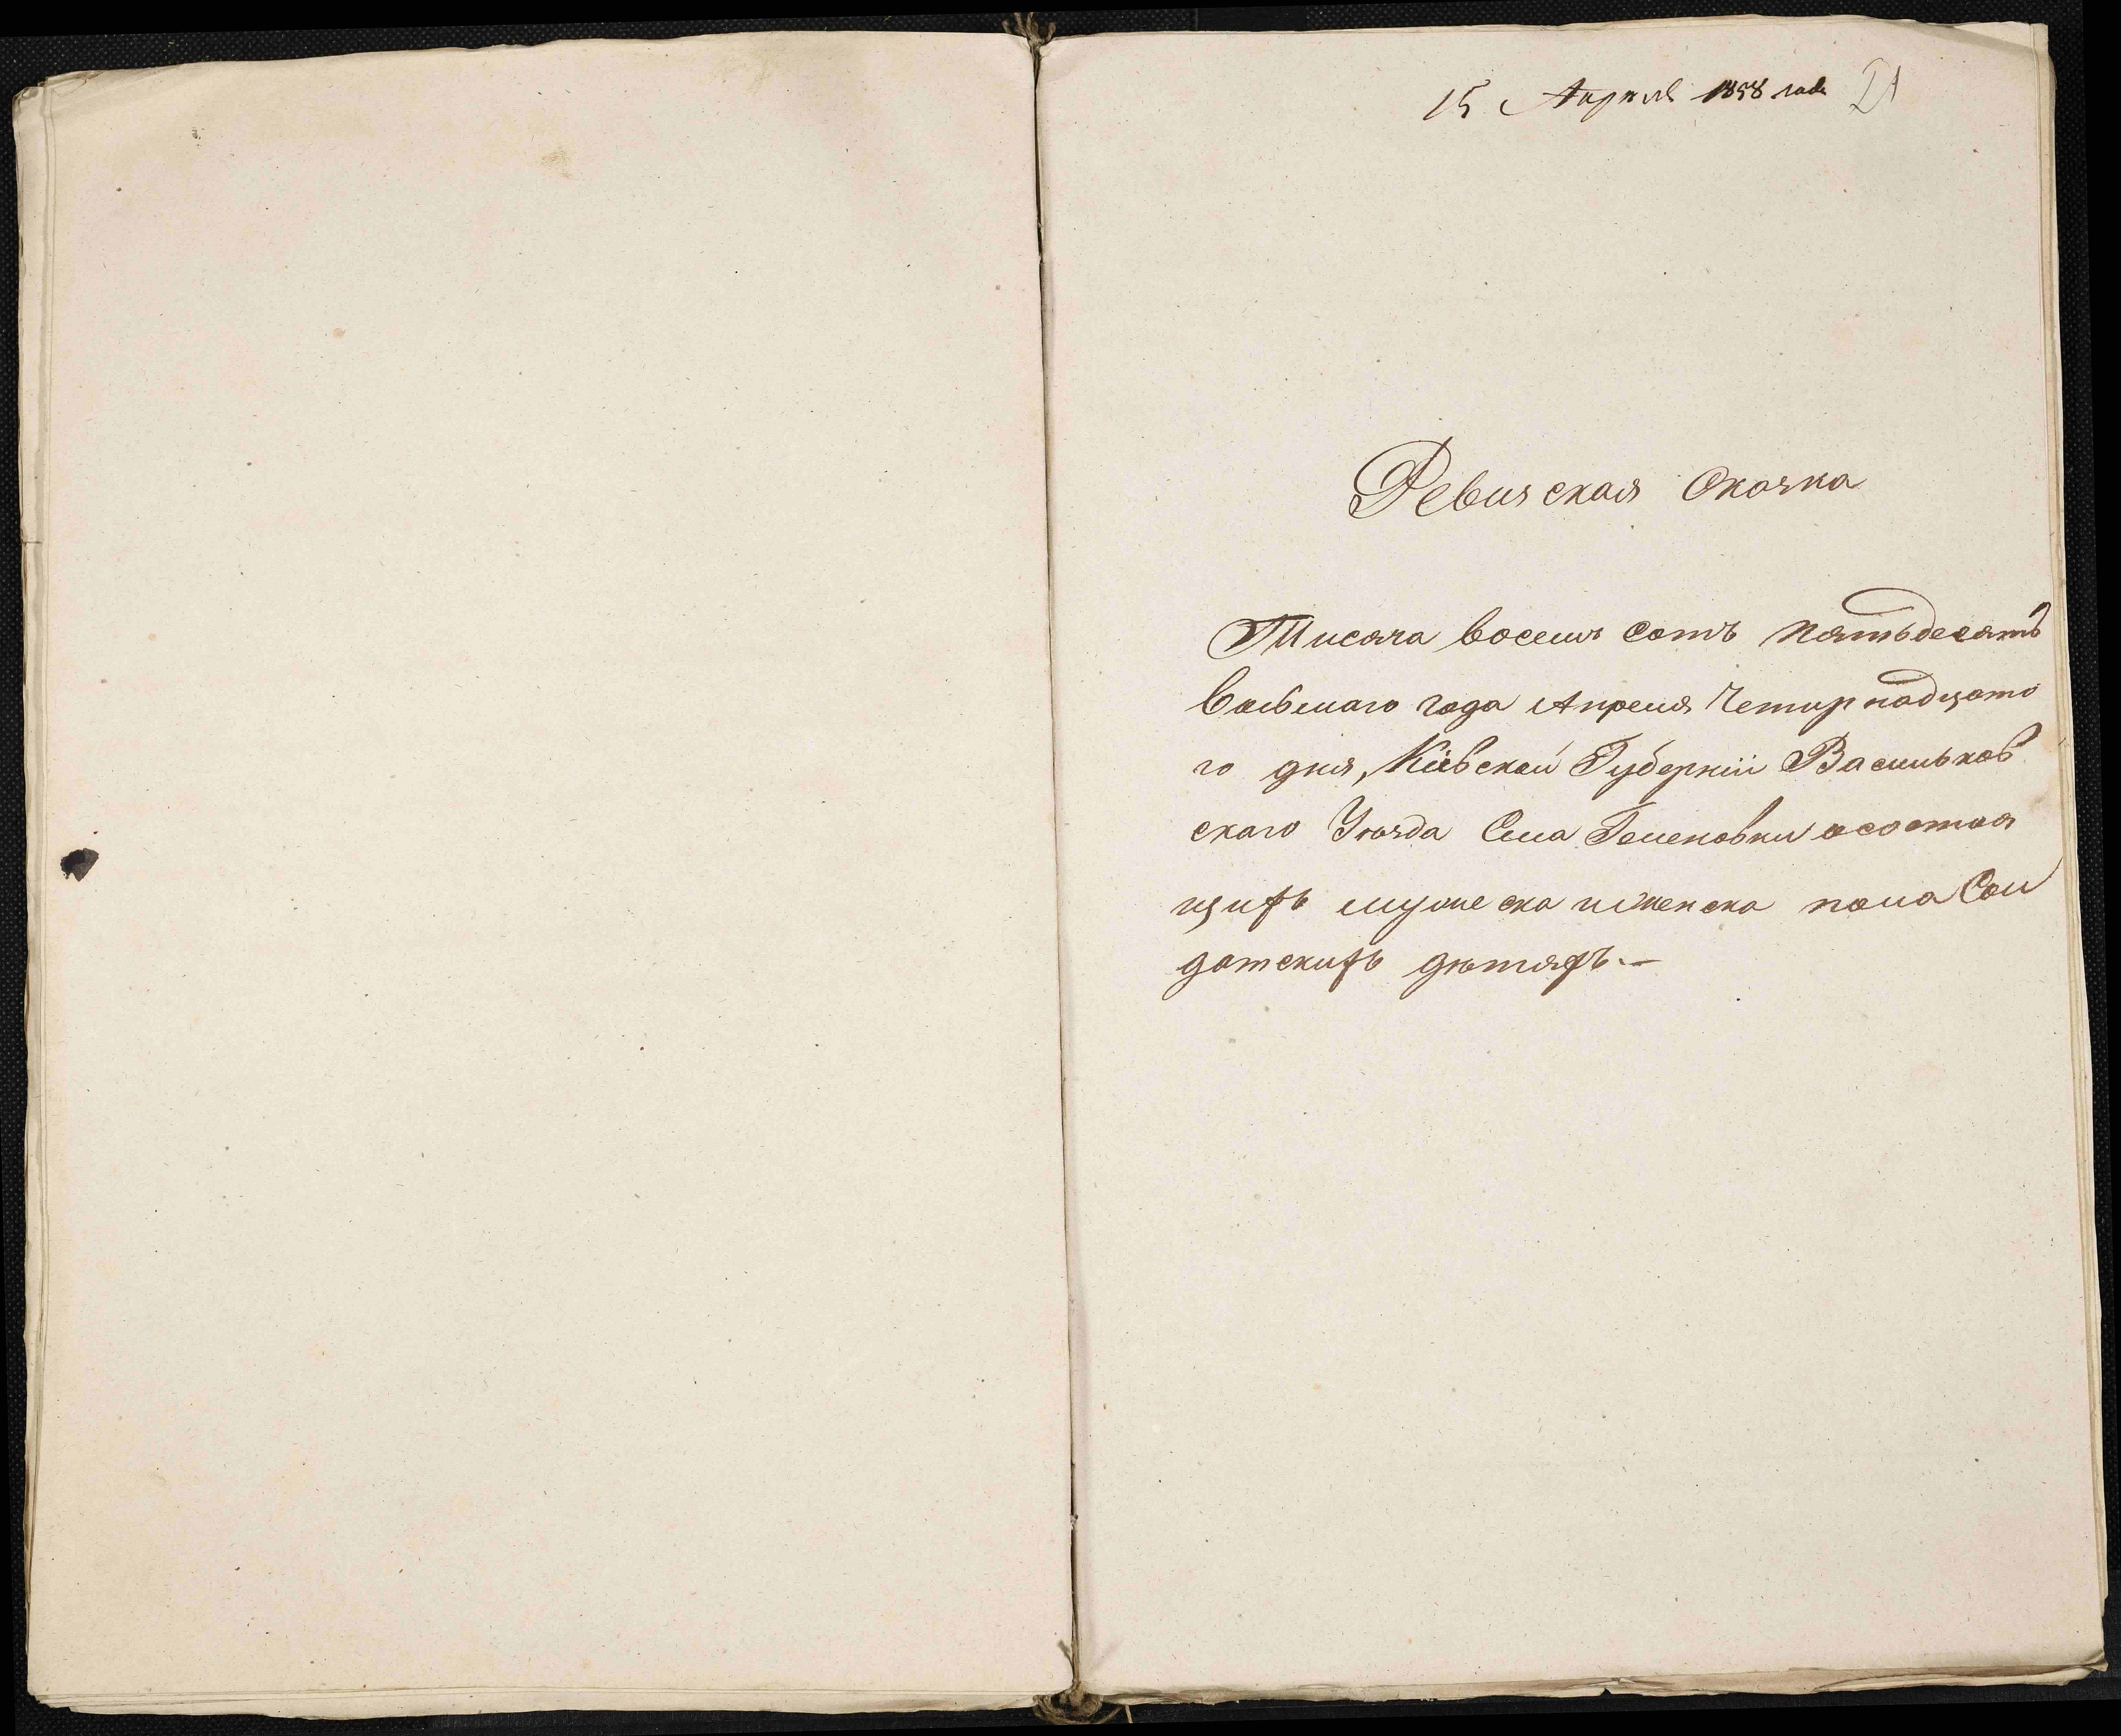 15 Апреля 1858 года 21
Ревизская Сказка
Тисяча восемъ сотъ пятьдесятъ
восьмаго года Апреля Четирнадцато
го дня, Кіевской Губерніи Васильков
скаго Уѣзда Села Геленовки о состоя
щихъ мужеска и женска пола Сол
датскихъ дѣтяхъ.—